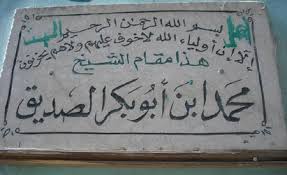 بسم الله الرحمن الرحيم
ألا إن أولياء الله لا خوف عليهم ولا هم يحزنون
هذا مقام الشيخ
محمد ابن أبو بكر الصديق